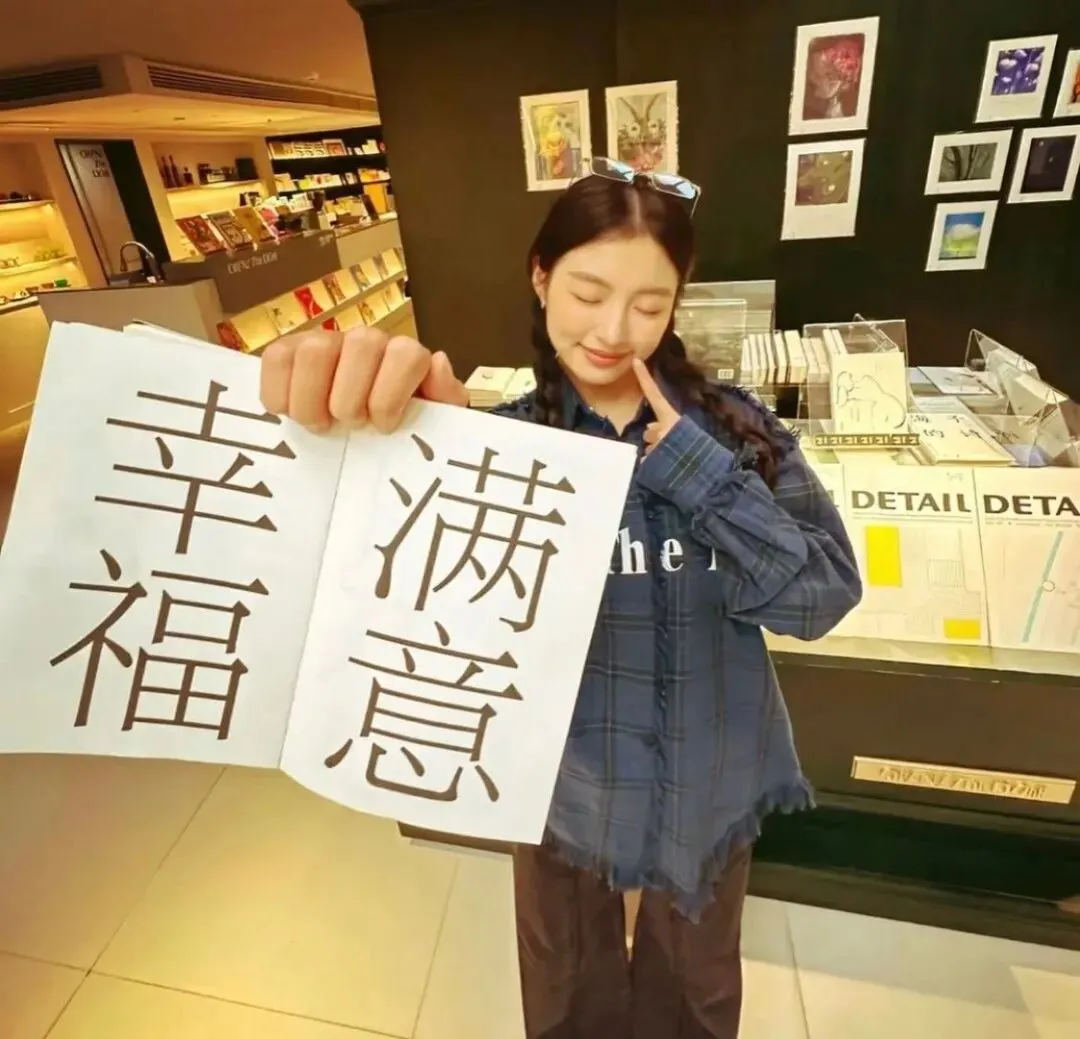 幸福
满意
The
DETAIL
DETA